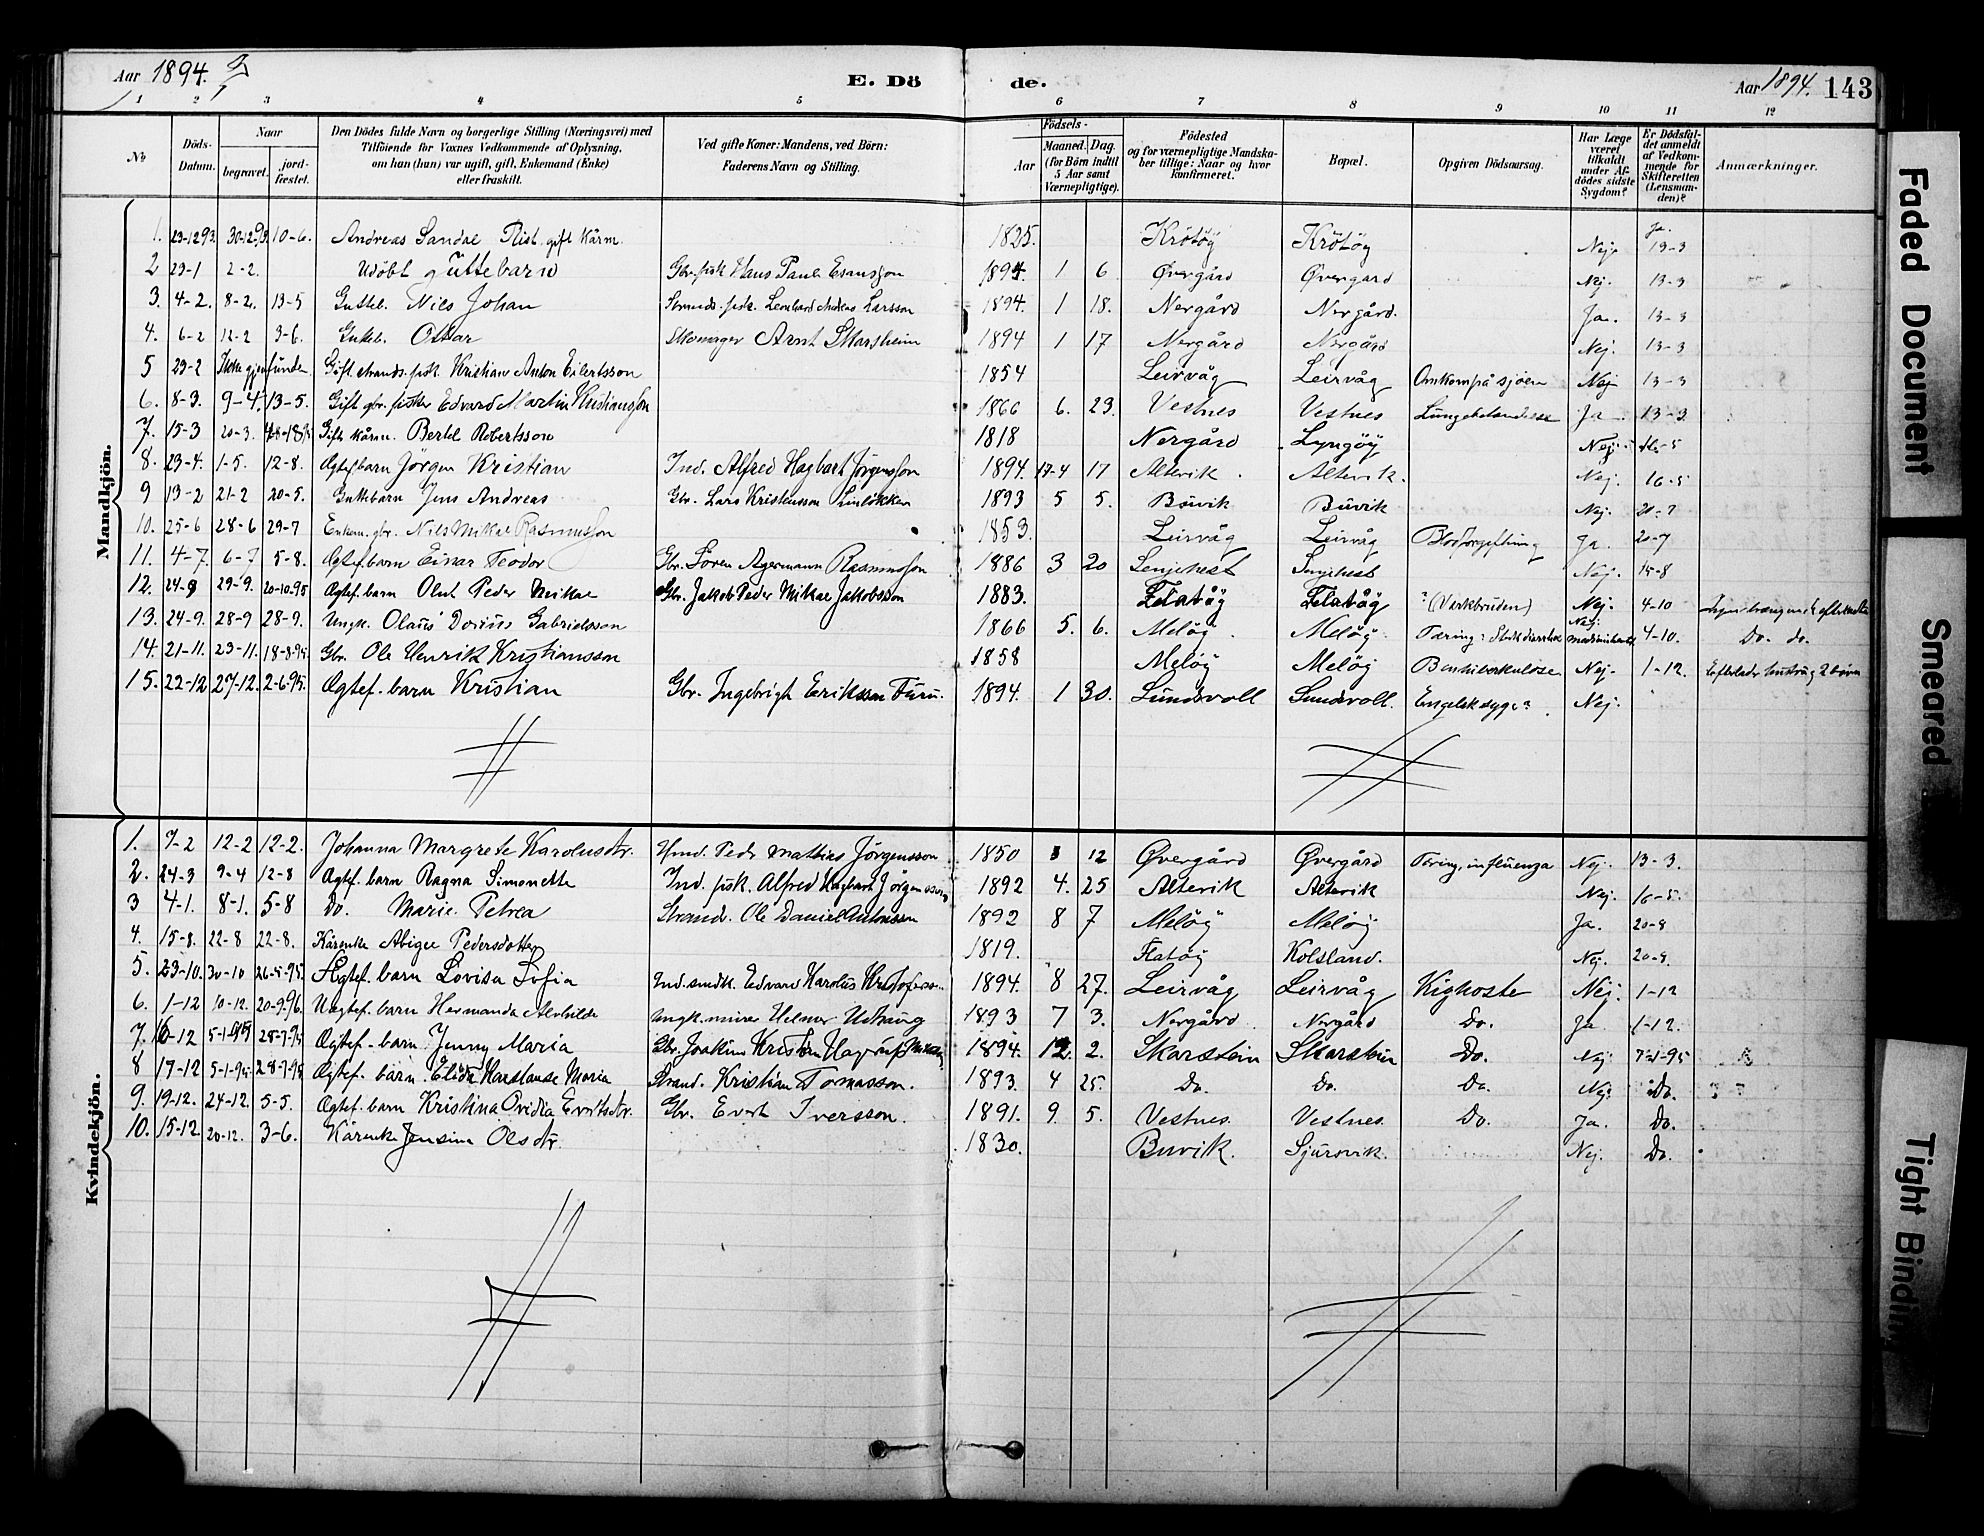 Aar 1894.
E. Döde.
Aar 1894. 143
1 2 3 4 5 6 7 8 9 10 11 12
No
Döds-Datum.
Naar begravet. jordfæstet.
Den Dödes fulde Navn og borgerlige Stilling (Næringsvei) med Tilføiende for Voxnes Vedkommende af Oplysning, om han (hun) var ugift, gift, Enkemand (Enke) eller fraskilt.
Ved gifte Koner: Mandens, ved Börn: Faderens Navn og Stilling.
Födsels-
Aar Maaned. Dag. (for Börn indtil 5 Aar samt Værnepligtige).
Födested og for værnepligtige Mandskaber tillige: Naar og hvor konfirmeret.
Bopæl.
Opgiven Dödsaarsag.
Har Læge været tilkaldt under Afdödes sidste Sygdom?
Er Dödsfaldet anmeldt af Vedkommende for Skifteretten (Lensmanden)?
Anmærkninger.
Mandkjön.
1. 23-12 93. 30-12 93. 10-6. Andreas Sandal gift kårm. 1825. Krötöy Krötöy Nej. Ja. 13-3
2 23-1 2-2. Udöbt guttebarn Gbr. fisk Hans Paul Esaussøn 1894. 1 6 Øvergård Øvergård Nej. 13-3
3. 4-2. 8-2. 13-5 Gutteb. Nils Johan Strands. fisk. Leonhard Andreas Larsson 1894. 1 18. Nergård Nergård. Ja. 13-3
4. 6-2 12-2 3-6. Gutteb. Oskar Skomager Arnt Skarsheim 1894 1 17 Nergård Nergård Nej. 13-3
5 23-2 Ikke gjenfunden Gift strands. fisk. Kristian Anton Eilertsson 1854 Leirvåg Leirvåg Omkom på sjøen Nej 13-3
6. 8-3. 9-4. 13-5. Gift gbr. fisker Edvard Martin Kristiansson 1866 6. 23. Vestnes Vestnes Lungebetændelse Ja 13-3
7. 15-3 20-3. Gift kårm. Bertel Robertsson 1818 Nergård Lyngöy Nej. 16-5
8. 23-4. 1-5. 12-8. Ægtef. barn Jörgen Kristian Ind. Alfred Hagbart Jörgensson 1894 17-4 17 Altervik. Altervik. Nej. 16-5
9 13-2 21-2 20-5. Guttebarn Jens Andreas Gbr. Lars Kristensson 1893 5 5. Buvik Buvik Nej. 20-7
10. 25-6 28-6 29-7 Enkem. gbr. Nils Mikal Rasmusson 1853. Leirvåg Leirvåg Blodforgiftning Ja. 20-7
11. 4-7. 6-7 5-8. Ægtef. barn Einar Teodor Gbr. Sören Agermann Rasmusson 1886 3 20 Senjehest Senjehest Nej. 15-8
12. 24-9 29-9. 20-10-95 Ægtef. barn Olut Peder Mikal Gbr. Jakob Peder Mikal Jakobsson 1883. Flatöy Flatöy ? (Værkbruden) Nej. 4-10
13. 24-9. 28-9 28-9. Ungk. Olaus Dorius Gabrielsson 1866 5. 6. Melöy. Melöy. Tæring? Nej. 4-10. Do. do.
14. 21-11. 23-11. 18-8-95. Gbr. Ole Henrik Kristiansson 1858 Melöy Melöy Nej. 1-12. Efterlader hustru og 2 børn
15. 22-12 27-12. 2-6-95. Ægtef. barn Kristian Gbr. Ingebrigt Eriksson Furu. 1894. 1 30. Sundsvoll Sundsvoll. Engelsk syge? Nej.
Kvindekjön.
1. 7-2 12-2 12-2. Johanna Margrete Karolusdtr. Hmd. Peder Mathias Jörgensson 1850 3 12 Øvergård Øvergård Tæring, influenza Nej. 13-3.
2. 24-3 9-4 12-8 Ægtef. barn Ragna Simonette Ind. fisk. Alfred Hagbart Jörgensson 1892 4. 25 Altervik Altervik Nej. 16-5.
3 4-1. 8-1. 5-8 Do. Marie Petrea Strands. Ole Daniel 1892 8 7 Melöy Melöy Ja. 20-9
4. 15-8. 22-8 22-8. Kårenke Abigel Pedersdotter 1819. Flatöy Kolsland. Nej. 20-9.
5. 23-10. 30-10 26-5-95. Ægtef. barn Lovisa Sofia Ind. smdk. Edvard Karolus Kristoferss. 1894. 8 27. Leirvåg Leirvåg Kighoste Nej. 1-12
6. 1-12 10-12. 20-9-96. Uægtef. barn Hermanda Alvhilde Ungk. murer Helmer 1893 7 3. Nergård Nergård Do. Ja 1-12.
7. 6-12 5-1-95 Ægtef. barn Jenny Maria Gbr. Joakim Kristian Hagerup 1894. 12. 2. Skarstein Skarstein Do. Nej. 7-1-95
8 17-12 5-1-95. 28-7-95 Ægtef. barn Elida Maria Strand. Kristian Tomasson. 1893. 4 25. Do. Do. Do. Nej. Do.
9. 19-12. 24-12 5-5. Ægtef. barn Kristina Ovidia Evertsdtr. Gbr. Evert Iversson. 1891. 9. 5. Vestnes. Vestnes. Do. Ja. Do.
10. 15-12 20-12. 3-6. Kårenke Jensine Olsdtr. 1830. Buvik. Sjursvik. Nej. Do.
Faded Document
Smeared
Tight Binding